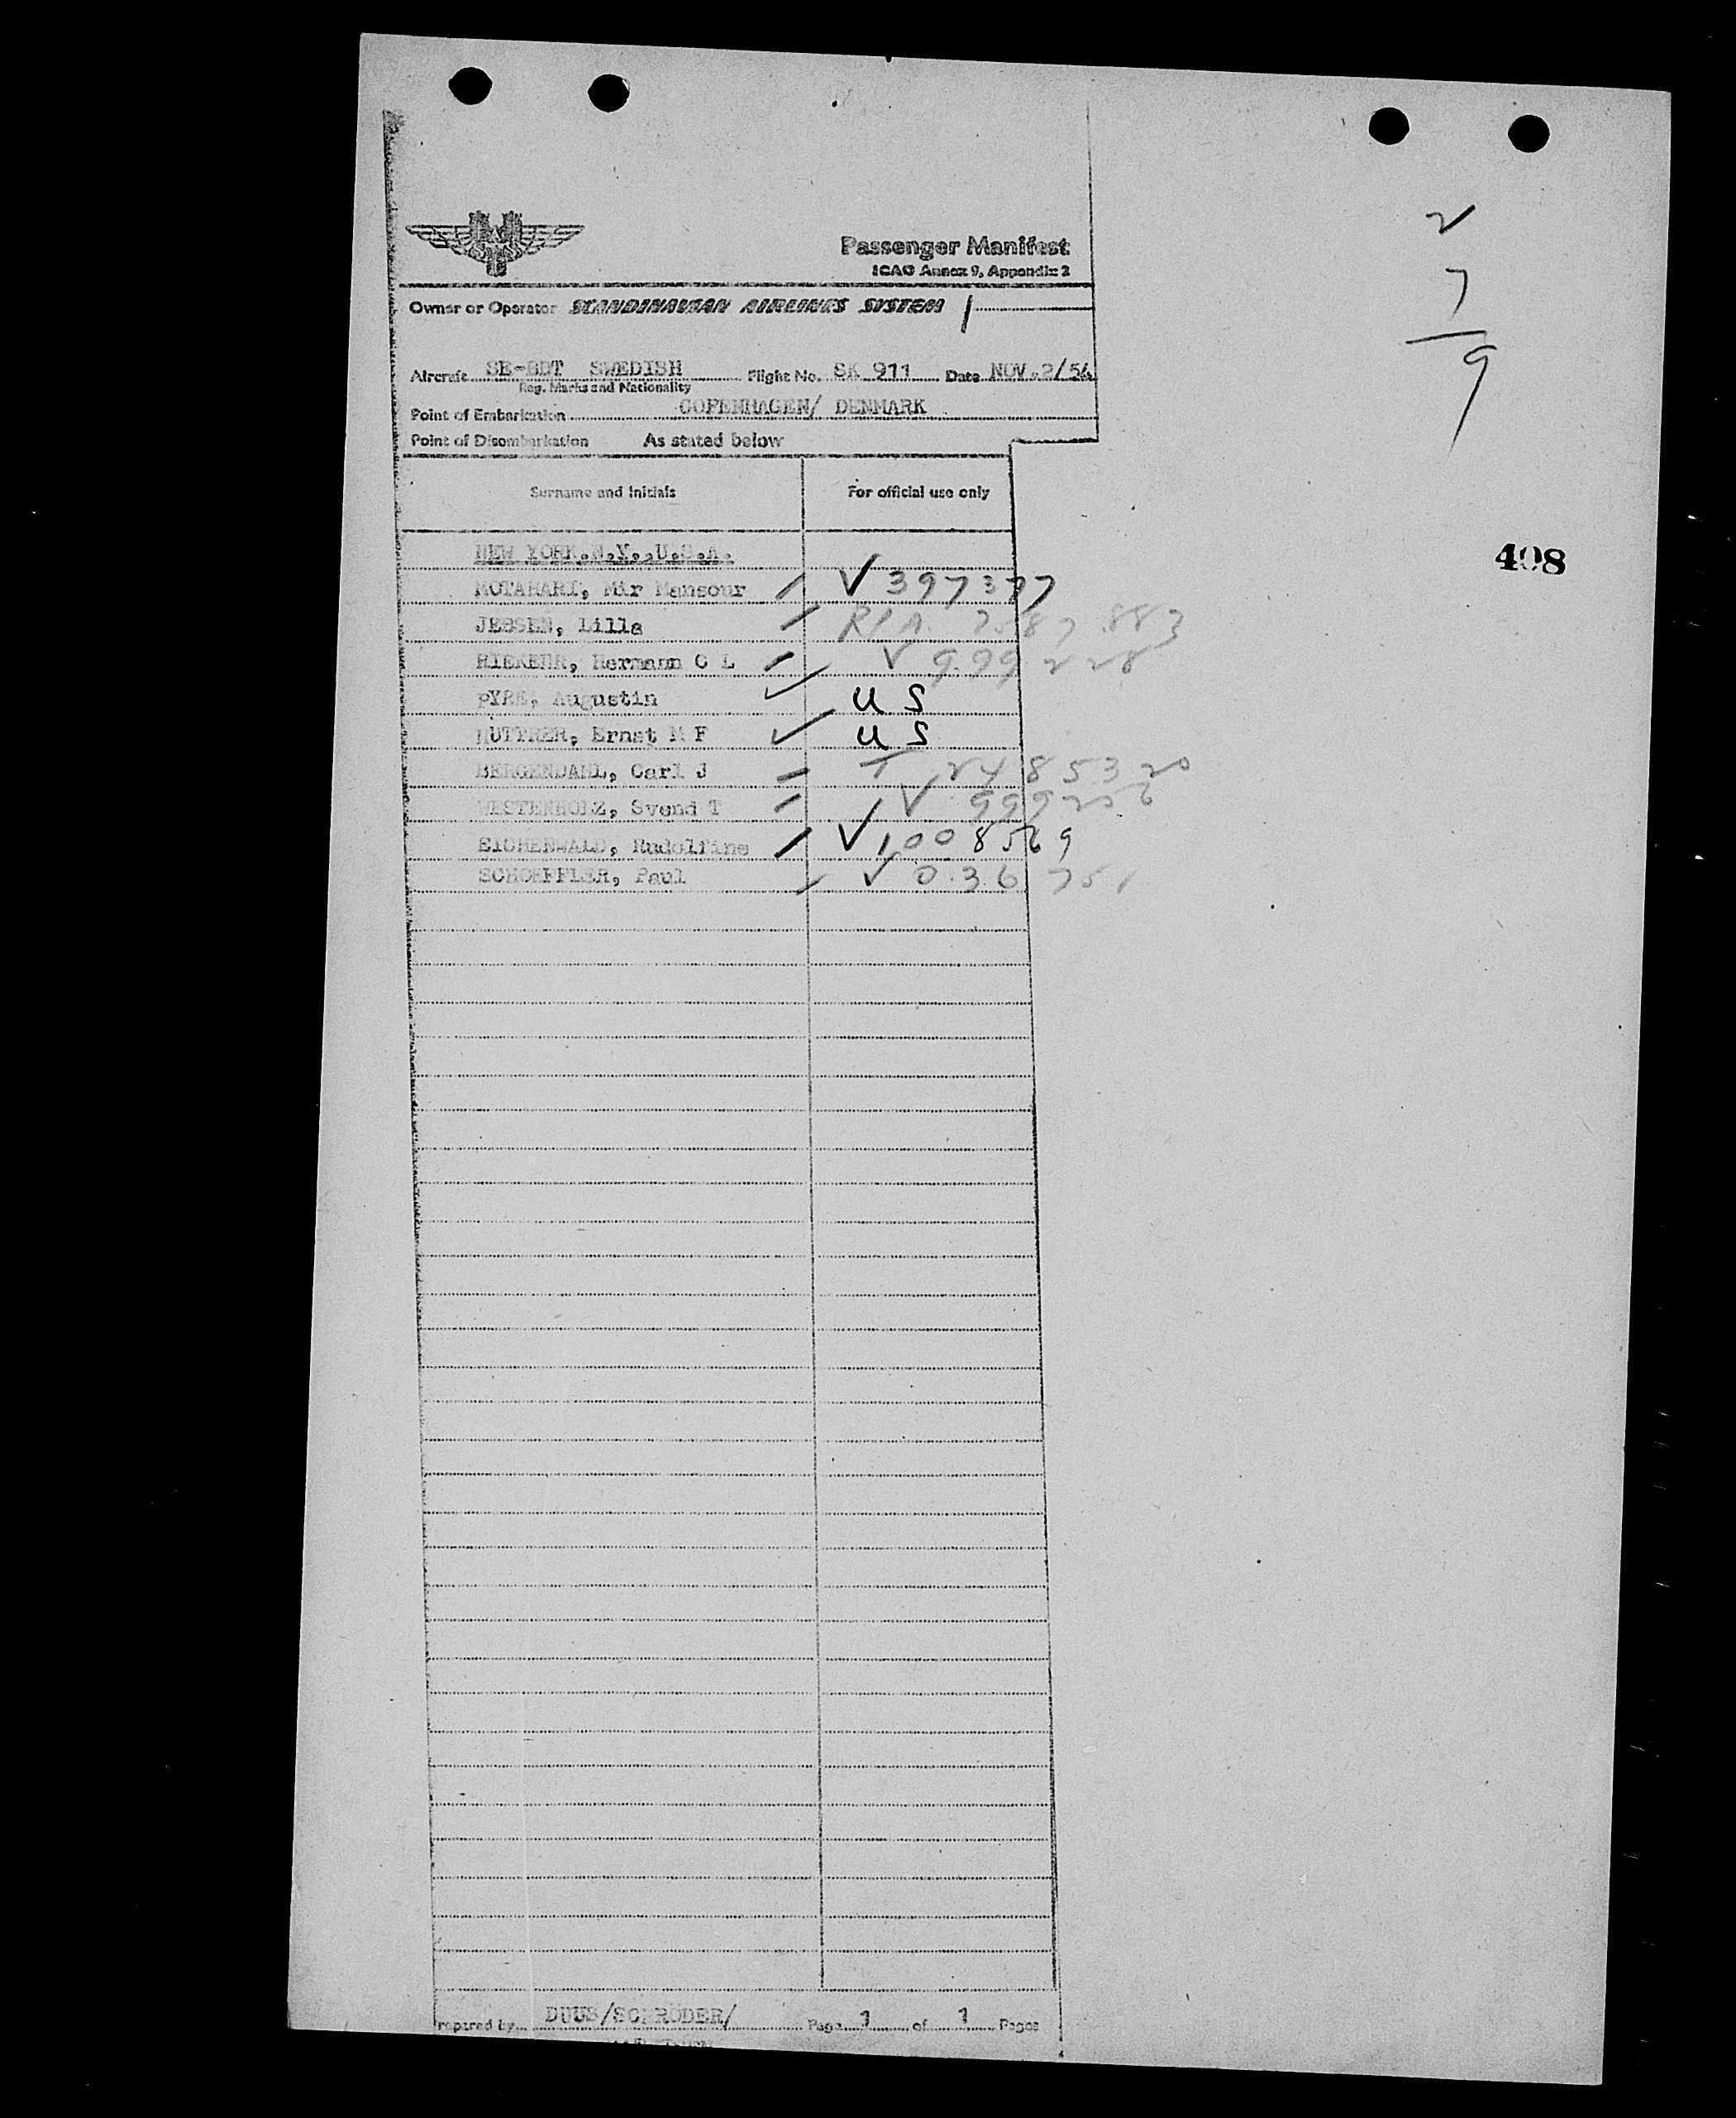 Passenger Manifest
ICAO Annex 9, Appendix 2
Owner or Operator SCANDINAVIAN AIRLINES SYSTEM
Aircraft SE-BDT SWEDISH Flight No. SK 911 Date NOV.2/54
Reg. Marks and Nationality
Point of Embarkation COPENHAGEN/ DENMARK
Point of Disembarkation As stated below
Surname and Initials For official use only
NEW YORK.N.Y.,U.S.A.
MOTAHARI, Mir Mansour V 397377
JESSEN, Lilla RPA
Hermann C L V 999228
PYRE, Augustin US
Ernst M F US
BERGENDAHL, Carl J T 2485320
WESTENHOLZ, Svend T V
EICHENWALD, Rudolfine V 1008569
SCHOEFFLER, Paul V 036751
Prepared by DUUS/SCHRODER/ Page 1 of 1 Pages
2
7
9
408